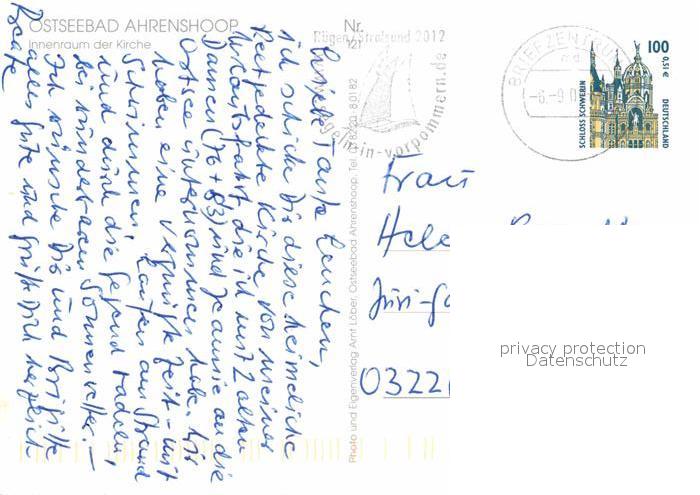 OSTSEEBAD AHRENSHOOP
Innenraum der Kirche
Nr.
121
Rügen/Stralsund 2012
vorpommern.de
BRIEFZENTRUM
-6.-9.0
SCHLOSS SCHWERIN
100
0,51 €
DEUTSCHLAND
Liebe Tante Lenchen,
ich schicke Dir diese heimeliche
Reetgedeckte Kirche von meiner
Urlaubsfahrt, die ich mit 2 alten
Damen (76 + 83) und Jeannie an die
Ostsee unternommen habe. Wir
haben eine vergnügte Zeit - mit
Schwimmen, Laufen am Strand
und durch die Gegend radeln,
bei wunderbarem Sonnenwetter. -
Ich wünsche Dir und Brigitte
alles Gute und grüße Dich herzlich
Beate
Photo und Eigenverlag Arnt Löber, Ostseebad Ahrenshoop, Tel. 038220 - 80182
Frau
Hele
0322
privacy protection
Datenschutz